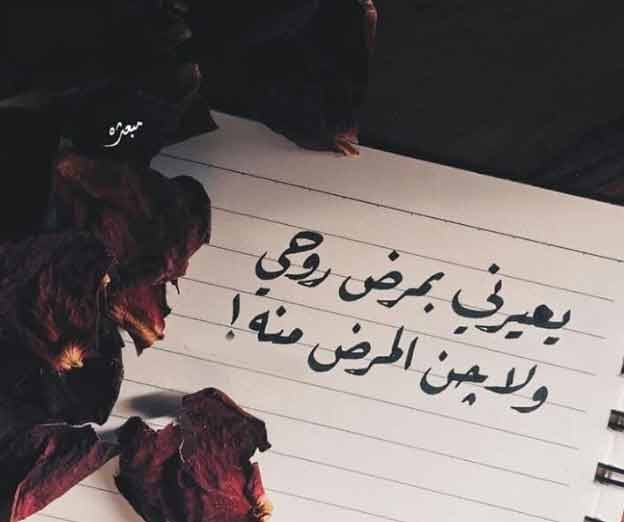 مبعثره
يعيرني بمرض روحي
ولاچن المرض منه !